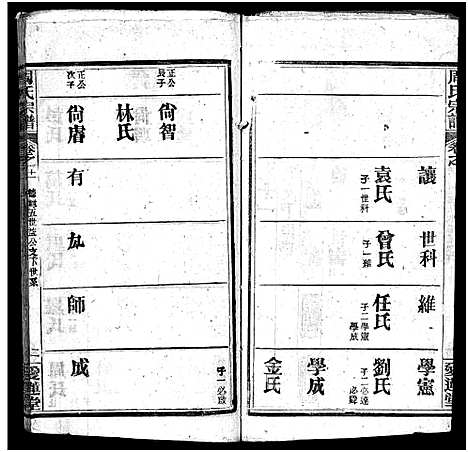 周氏宗譜
卷之
愛蓮堂
讓
袁氏
子一世科
世科
曾氏
子一維
維
任氏
子二學憲
學成
學憲
劉氏
子二必達
必暐
學成
金氏
子一必啟
正公
長子
尙智
林氏
正公
次子
尙虞
有
師
成
周氏宗譜
卷之
五世益公支下世系
愛蓮堂